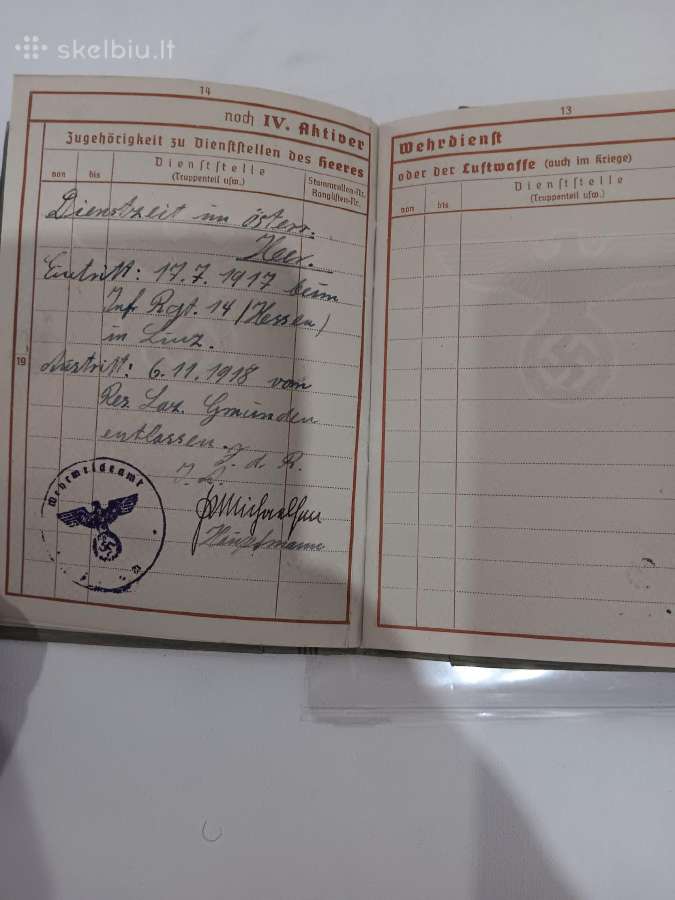 skelbiu.lt
14
noch IV. Aktiver
Zugehörigkeit zu Dienststellen des Heeres
von bis Dienststelle
(Truppenteil usw.)
Stammrollen-Nr.
Ranglisten-Nr.
Dienstzeit im österr.
Heer.
Eintritt: 17.7.1917 beim
Inf. Rgt. 14 (Hessen)
in Linz.
19
Austritt: 6.11.1918 vom
Res. Laz. Gmünden
entlassen.
F. d. R.
Hauptmann
Wehrmeldeamt
13
Wehrdienst
oder der Luftwaffe (auch im Kriege)
von bis Dienststelle
(Truppenteil usw.)